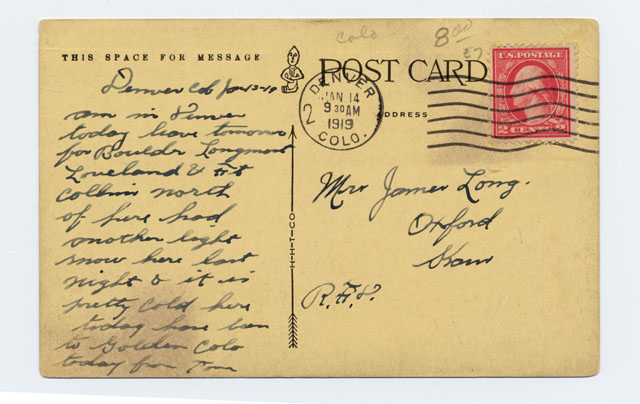 colo
8.00
THIS SPACE FOR MESSAGE
POST CARD
ADDRESS
DENVER
COLO.
JAN 14
9 30 AM
1919
2
U.S. POSTAGE
2 CENTS 2
Denver Colo Jan 13-19
am in Denver
today leave tomorrow
for Boulder Longmont
Loveland & Ft
Collins north
of here had
another light
snow here last
night & it is
pretty cold here
today have been
to Golden Colo
today from Tom
H-H-T-CO
Mrs James Long.
Oxford
Kans
R.F.D.